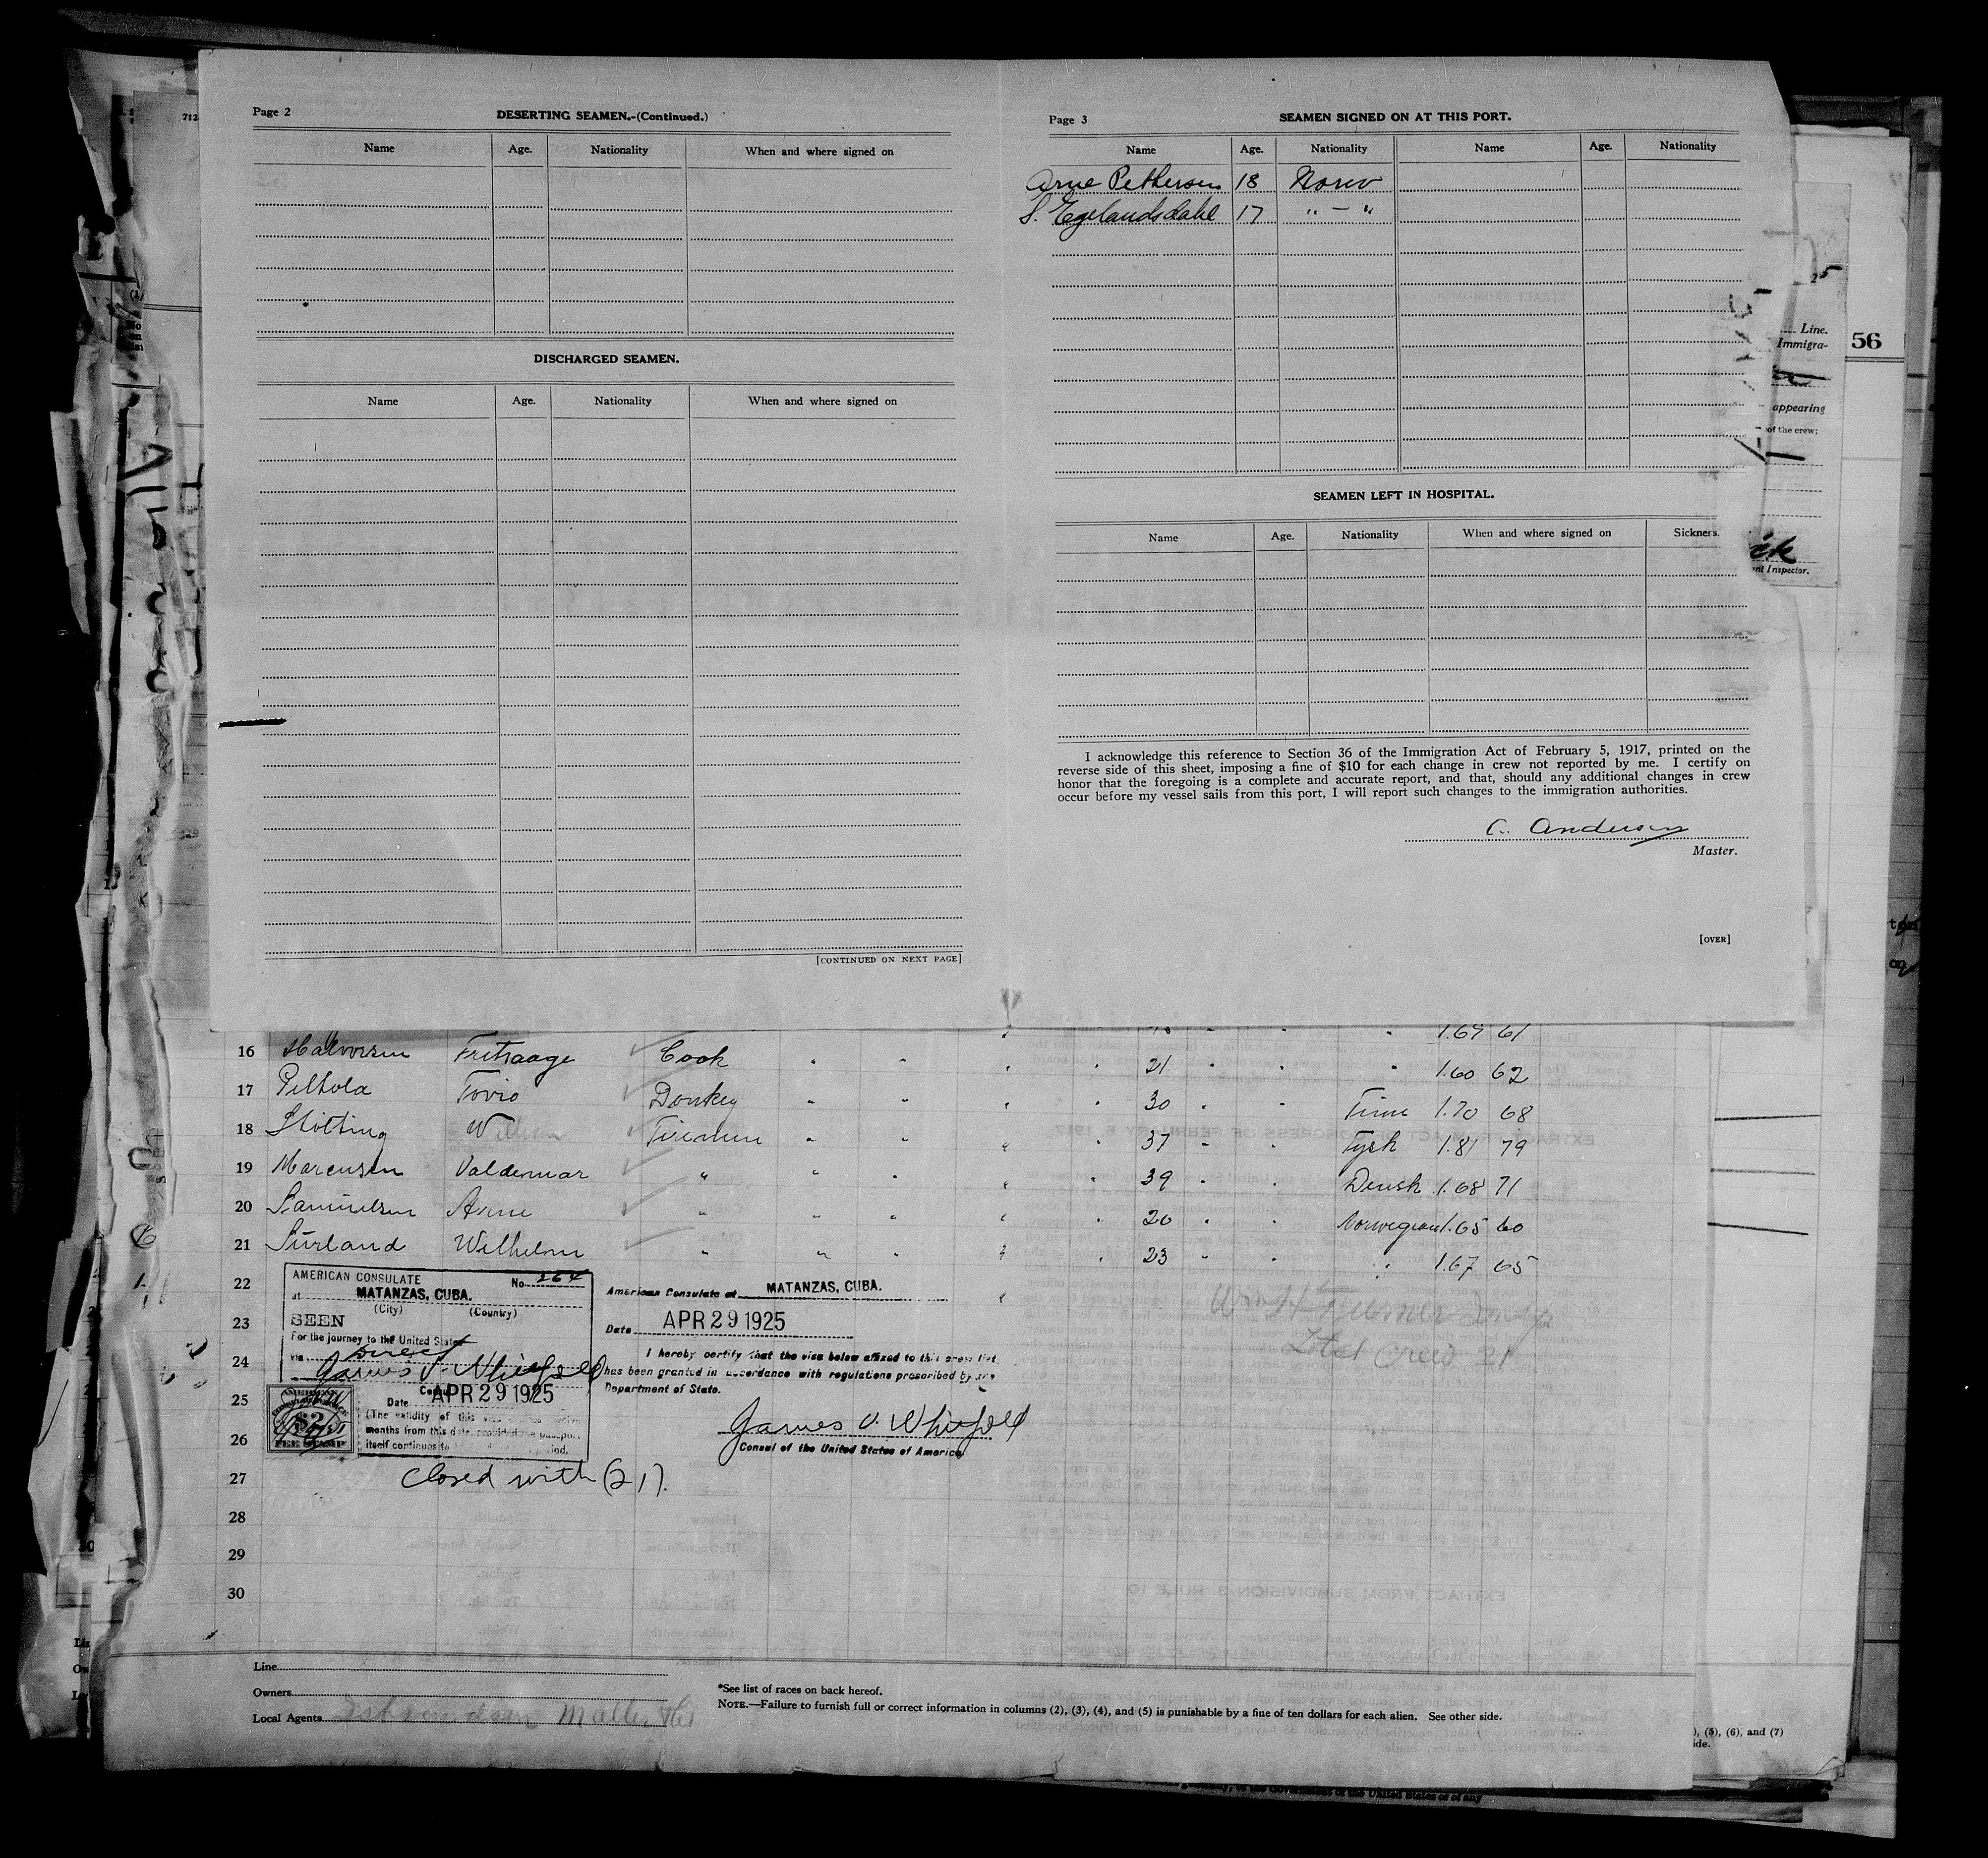 Page 2
DESERTING SEAMEN.-(Continued.)
Name Age. Nationality When and where signed on
DISCHARGED SEAMEN.
Name Age. Nationality When and where signed on
[CONTINUED ON NEXT PAGE]
Page 3
SEAMEN SIGNED ON AT THIS PORT.
Name Age. Nationality Name Age. Nationality
Arne Pettersen 18 Norw
S. Egelandsdahl 17 " - "
SEAMEN LEFT IN HOSPITAL.
Name Age. Nationality When and where signed on Sickness.
I acknowledge this reference to Section 36 of the Immigration Act of February 5, 1917, printed on the
reverse side of this sheet, imposing a fine of $10 for each change in crew not reported by me. I certify on
honor that the foregoing is a complete and accurate report, and that, should any additional changes in crew
occur before my vessel sails from this port, I will report such changes to the immigration authorities.
C. Andersen
Master.
[OVER]
712
25
Line.
Immigra-
56
appearing
of the crew;
Inspector.
1.69 61
16 Halvorsen Cook " " " " 21 " " " 1.60 62
17 Peltola Toivo Donkey " " " " 30 " " Finn 1.70 68
18 Stölting Firemen " " " " 37 " " Tysk 1.81 79
19 Marcusen Valdemar " " " " " 39 " " Dansk 1.68 71
20 Samuelsen Arne " " " " " 20 " " Norwegian 1.65 60
21 Surland Wilhelm " " " " " 23 " " " 1.67 65
22
23
24
25
26
27
28
29
30
AMERICAN CONSULATE No. 264
at MATANZAS, CUBA.
(City) (Country)
SEEN
For the journey to the United States
via Direct
James V. Whitfield
Consul
Date APR 29 1925
(The validity of this
months from this date, provided the passport
itself continues to period.
$2
FEE STAMP
American Consulate at MATANZAS, CUBA.
Date APR 29 1925
I hereby certify that the visa below affixed to this crew list,
has been granted in accordance with regulations prescribed by the
Department of State.
James V. Whitfield
Consul of the United States of America
Total crew 21
Closed with (21).
Line
Owners
Local Agents
*See list of races on back hereof.
NOTE.—Failure to furnish full or correct information in columns (2), (3), (4), and (5) is punishable by a fine of ten dollars for each alien. See other side.
(5), (6), and (7)
ide.
of the Government of the United States or of any